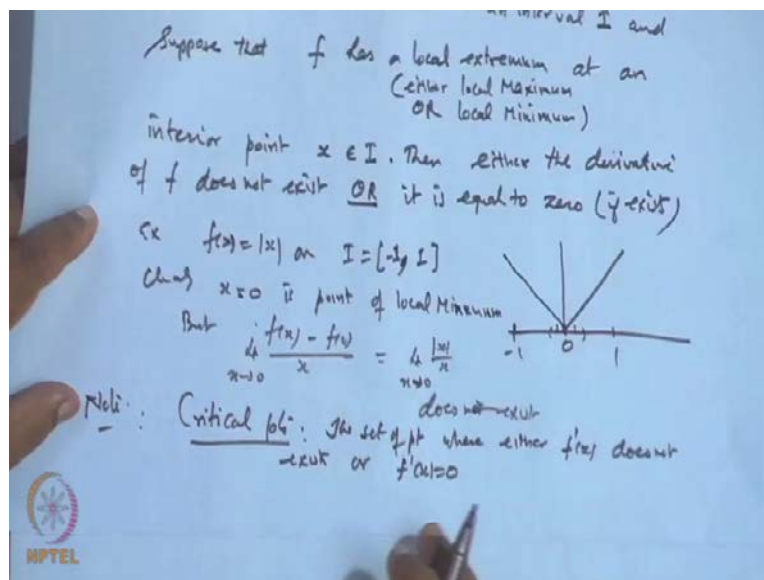 an interval I and
Suppose that f has a local extremum at an
(either local Maximum
OR local Minimum)
interior point x ∈ I. Then either the derivative
of f does not exist OR it is equal to zero (if exist)
Ex f(x) = |x| on I = [-1, 1]
x=0 is point of local Minimum
But lt x→0 f(x) - f(0) / x = lt x→0 |x| / x
does not exist
-1 0 1
Note: Critical pts: The set of pt where either f'(x) does not
exist or f'(x)=0
NPTEL